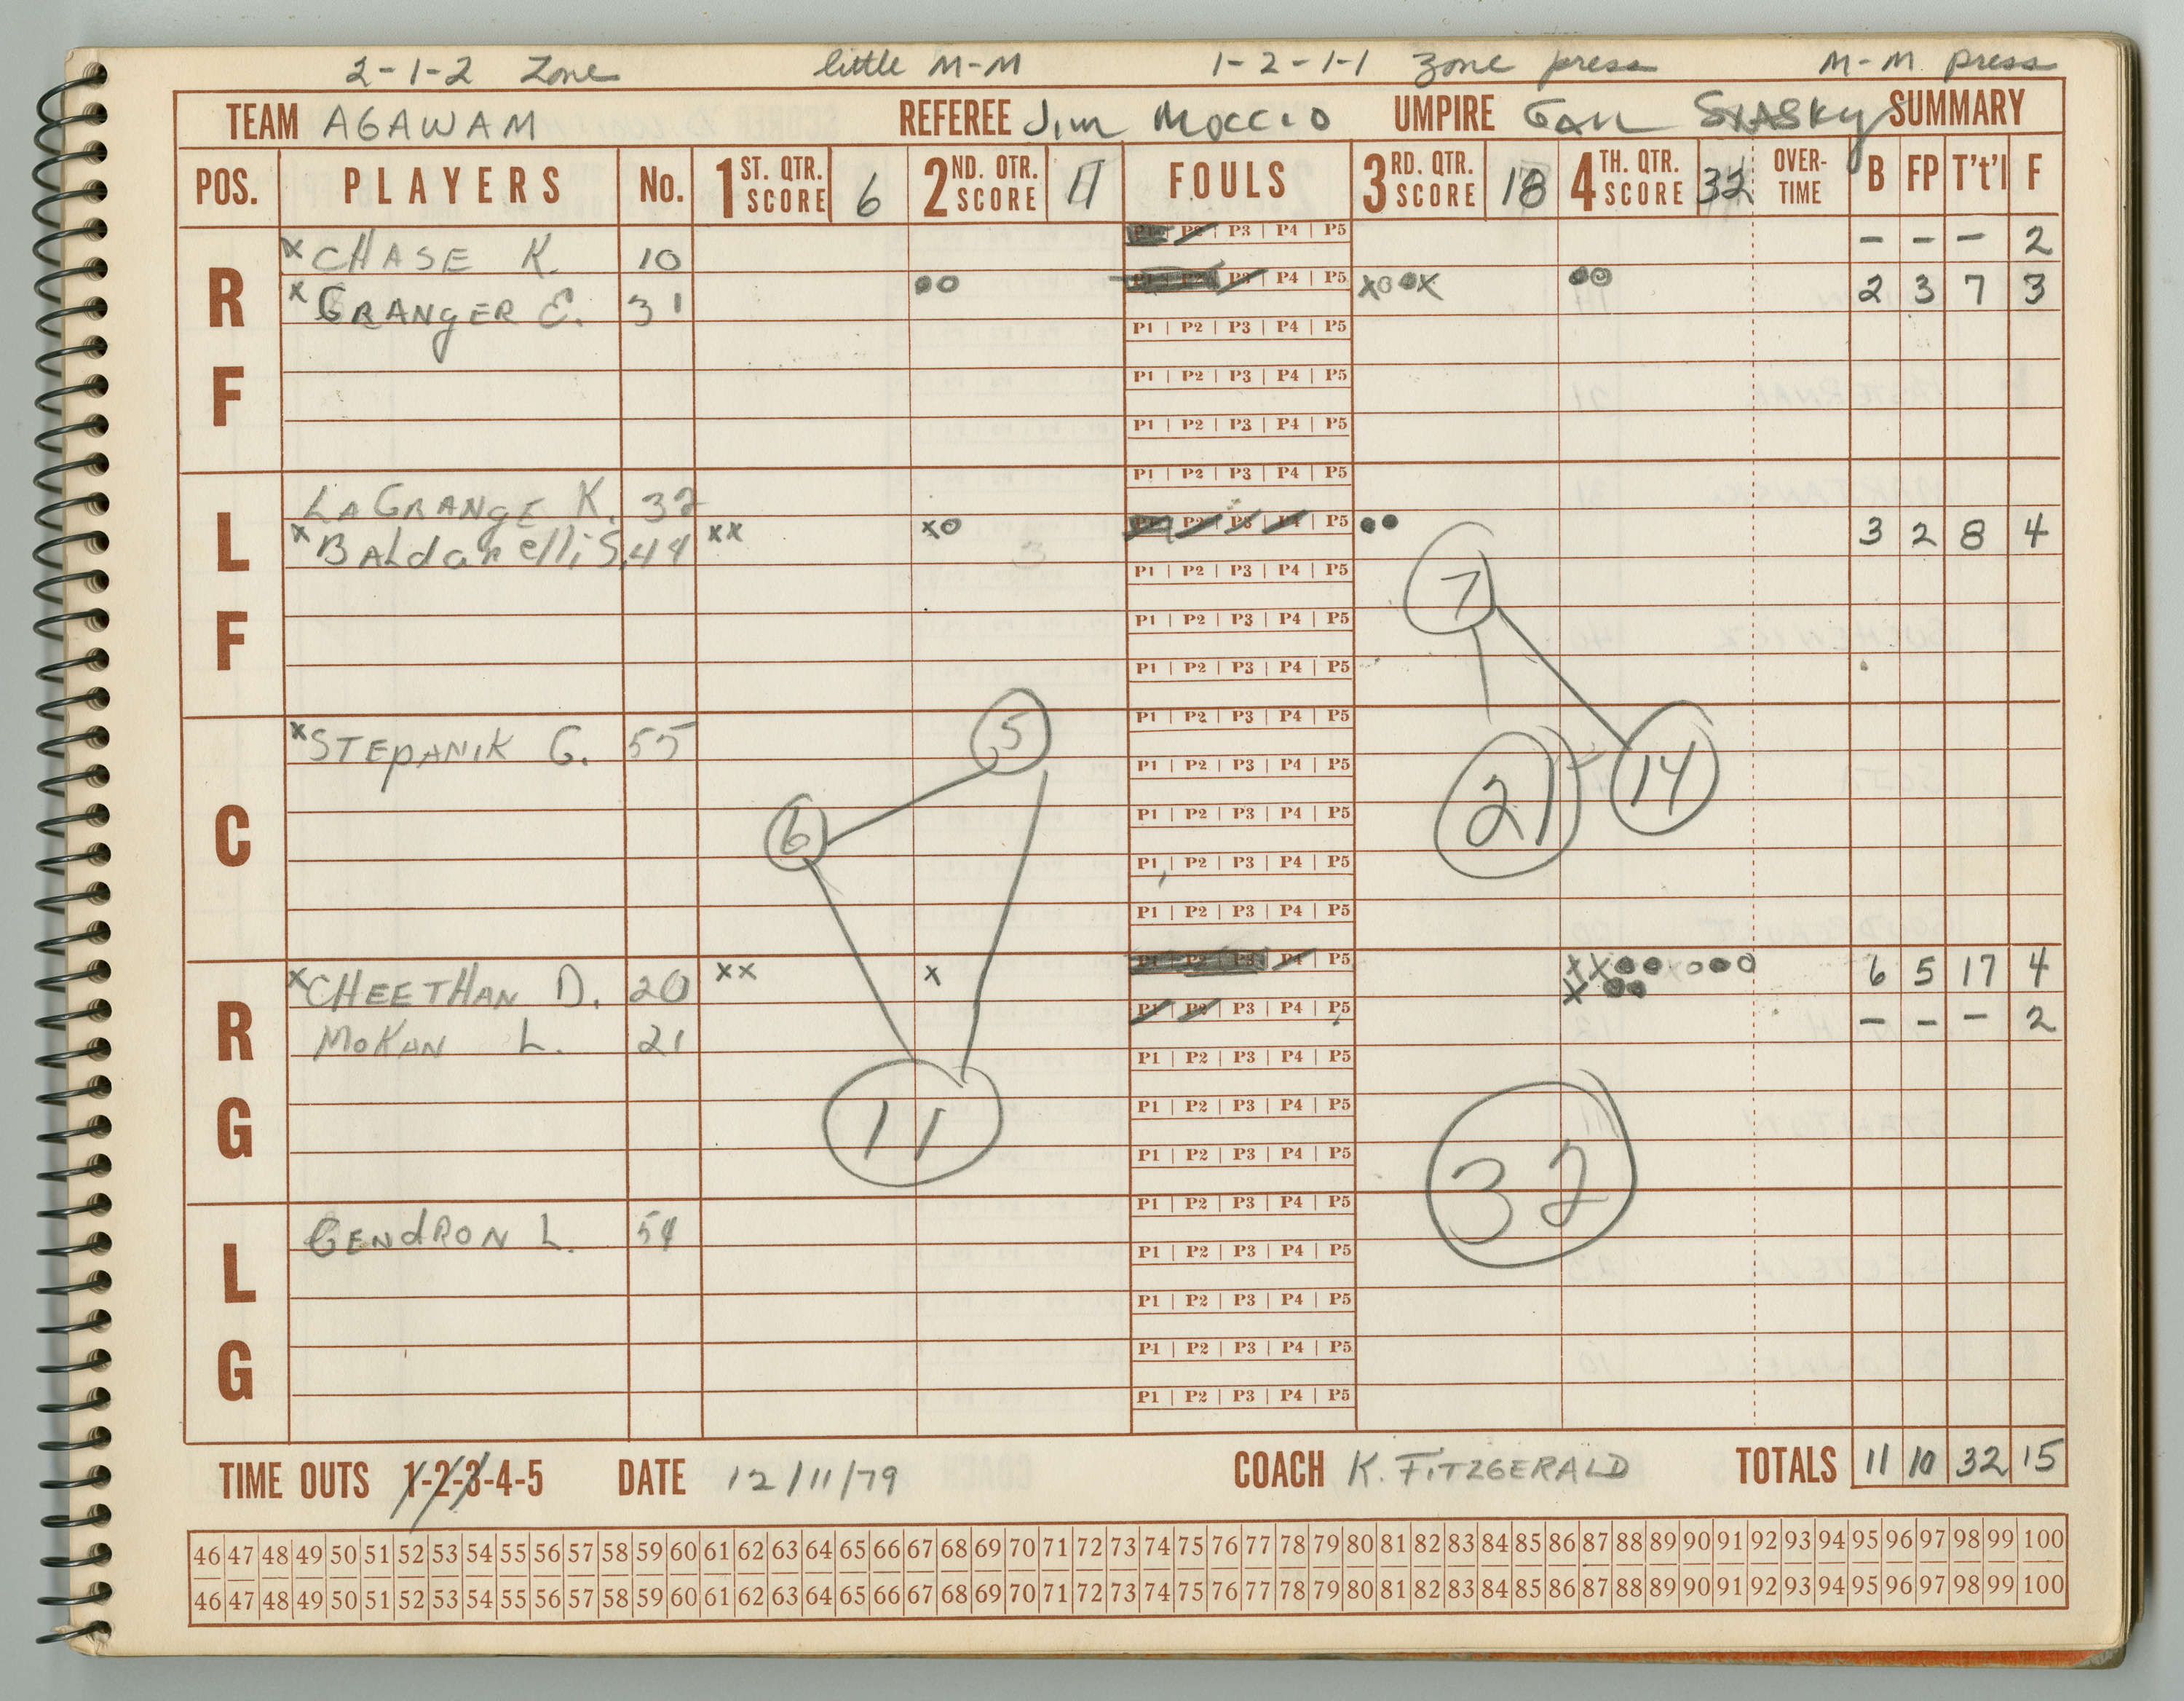 2-1-2 Zone little M-M 1-2-1-1 Zone press M-M press
TEAM AGAWAM REFEREE Jim Moccio UMPIRE SUMMARY
POS. PLAYERS No. 1ST. QTR. SCORE 6 2ND. QTR. SCORE 11 FOULS 3RD. QTR. SCORE 18 4TH. QTR. SCORE 32 OVER-TIME B FP T't'l F
RF
x CHASE K. 10 P1 P2 P3 P4 P5 - - - 2
x GRANGER E. 31 ●○ P1 P2 P3 P4 P5 x○●x ●○ 2 3 7 3
P1 P2 P3 P4 P5
P1 P2 P3 P4 P5
P1 P2 P3 P4 P5
LF
P1 P2 P3 P4 P5
LAGRANGE K. 32
x BALdAnElli S. 44 xx x○ P1 P2 P3 P4 P5 ●● 3 2 8 4
P1 P2 P3 P4 P5
7
P1 P2 P3 P4 P5
P1 P2 P3 P4 P5
C
P1 P2 P3 P4 P5
x STEPANIK G. 55 5
P1 P2 P3 P4 P5
21 14
6 P1 P2 P3 P4 P5
P1 P2 P3 P4 P5
P1 P2 P3 P4 P5
RG
x CHEETHAN D. 20 xx x P1 P2 P3 P4 P5 xx●●x○●●○ 6 5 17 4
x●●
MOKAN L. 21 P1 P2 P3 P4 P5 - - - 2
P1 P2 P3 P4 P5
11 P1 P2 P3 P4 P5
P1 P2 P3 P4 P5
32
LG
P1 P2 P3 P4 P5
GENdRON L. 54
P1 P2 P3 P4 P5
P1 P2 P3 P4 P5
P1 P2 P3 P4 P5
P1 P2 P3 P4 P5
TIME OUTS 1-2-3-4-5 DATE 12/11/79 COACH K. FITZGERALD TOTALS 11 10 32 15
46 47 48 49 50 51 52 53 54 55 56 57 58 59 60 61 62 63 64 65 66 67 68 69 70 71 72 73 74 75 76 77 78 79 80 81 82 83 84 85 86 87 88 89 90 91 92 93 94 95 96 97 98 99 100
46 47 48 49 50 51 52 53 54 55 56 57 58 59 60 61 62 63 64 65 66 67 68 69 70 71 72 73 74 75 76 77 78 79 80 81 82 83 84 85 86 87 88 89 90 91 92 93 94 95 96 97 98 99 100